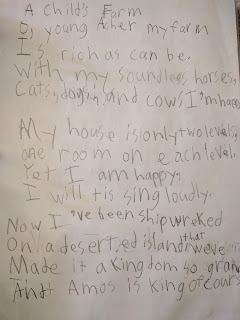 A child's Farm
O, young Acher my farm
Is rich as can be.
With my soundless horses,
Cats, dogs, and cows I'm happ
My house is only two levels,
one room on each level.
Yet I am happy,
I will sing loudly.
Now I've been shipwreked
On a deserted island that we've
Made it a kingdom so gran
And Amos is king of cours